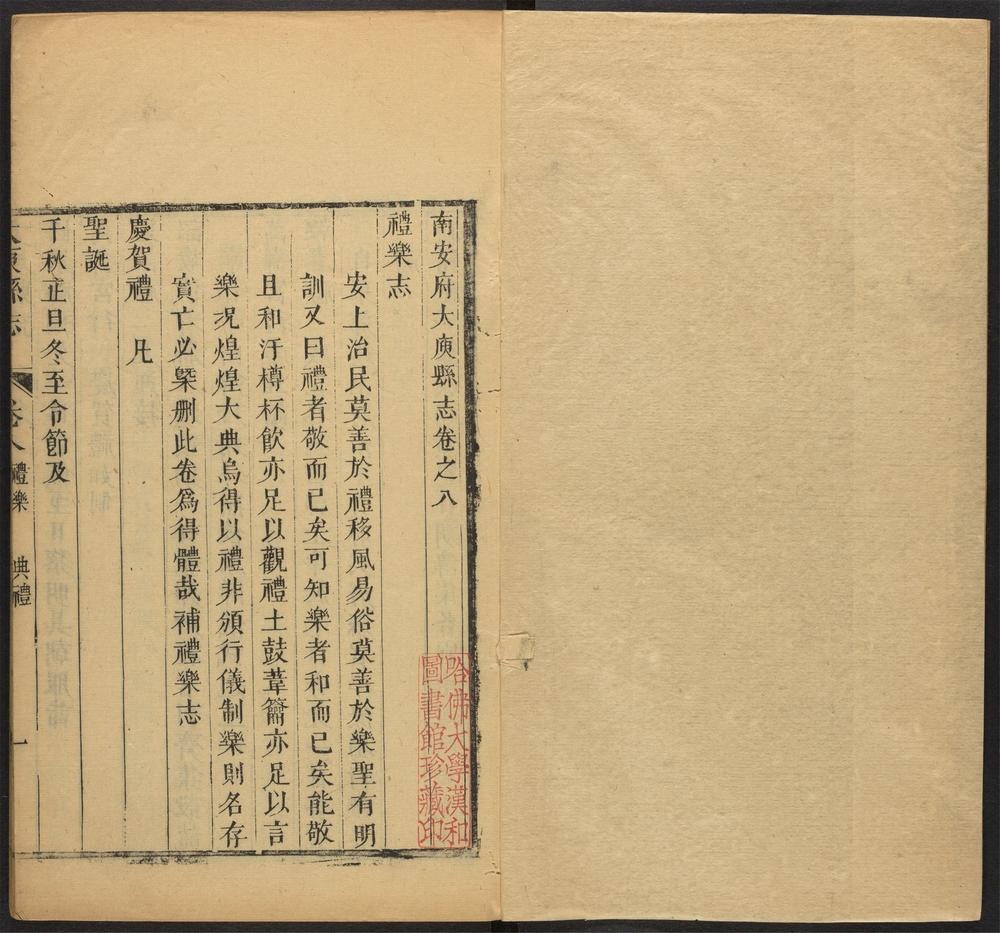 南安府大庾縣志卷之八
禮樂志
安上治民莫善於禮移風易俗莫善於樂聖有明
訓又曰禮者敬而已矣可知樂者和而已矣能敬
且和汙樽杯飲亦足以觀禮土鼓葦籥亦足以言
樂况煌煌大典烏得以禮非頒行儀制樂則名存
實亡必槩删此卷爲得體哉補禮樂志
慶賀禮　凡
聖誕
千秋正旦冬至令節及
大庾縣志　卷八　禮樂　典禮　一
哈佛大學漢和
圖書館珍藏印